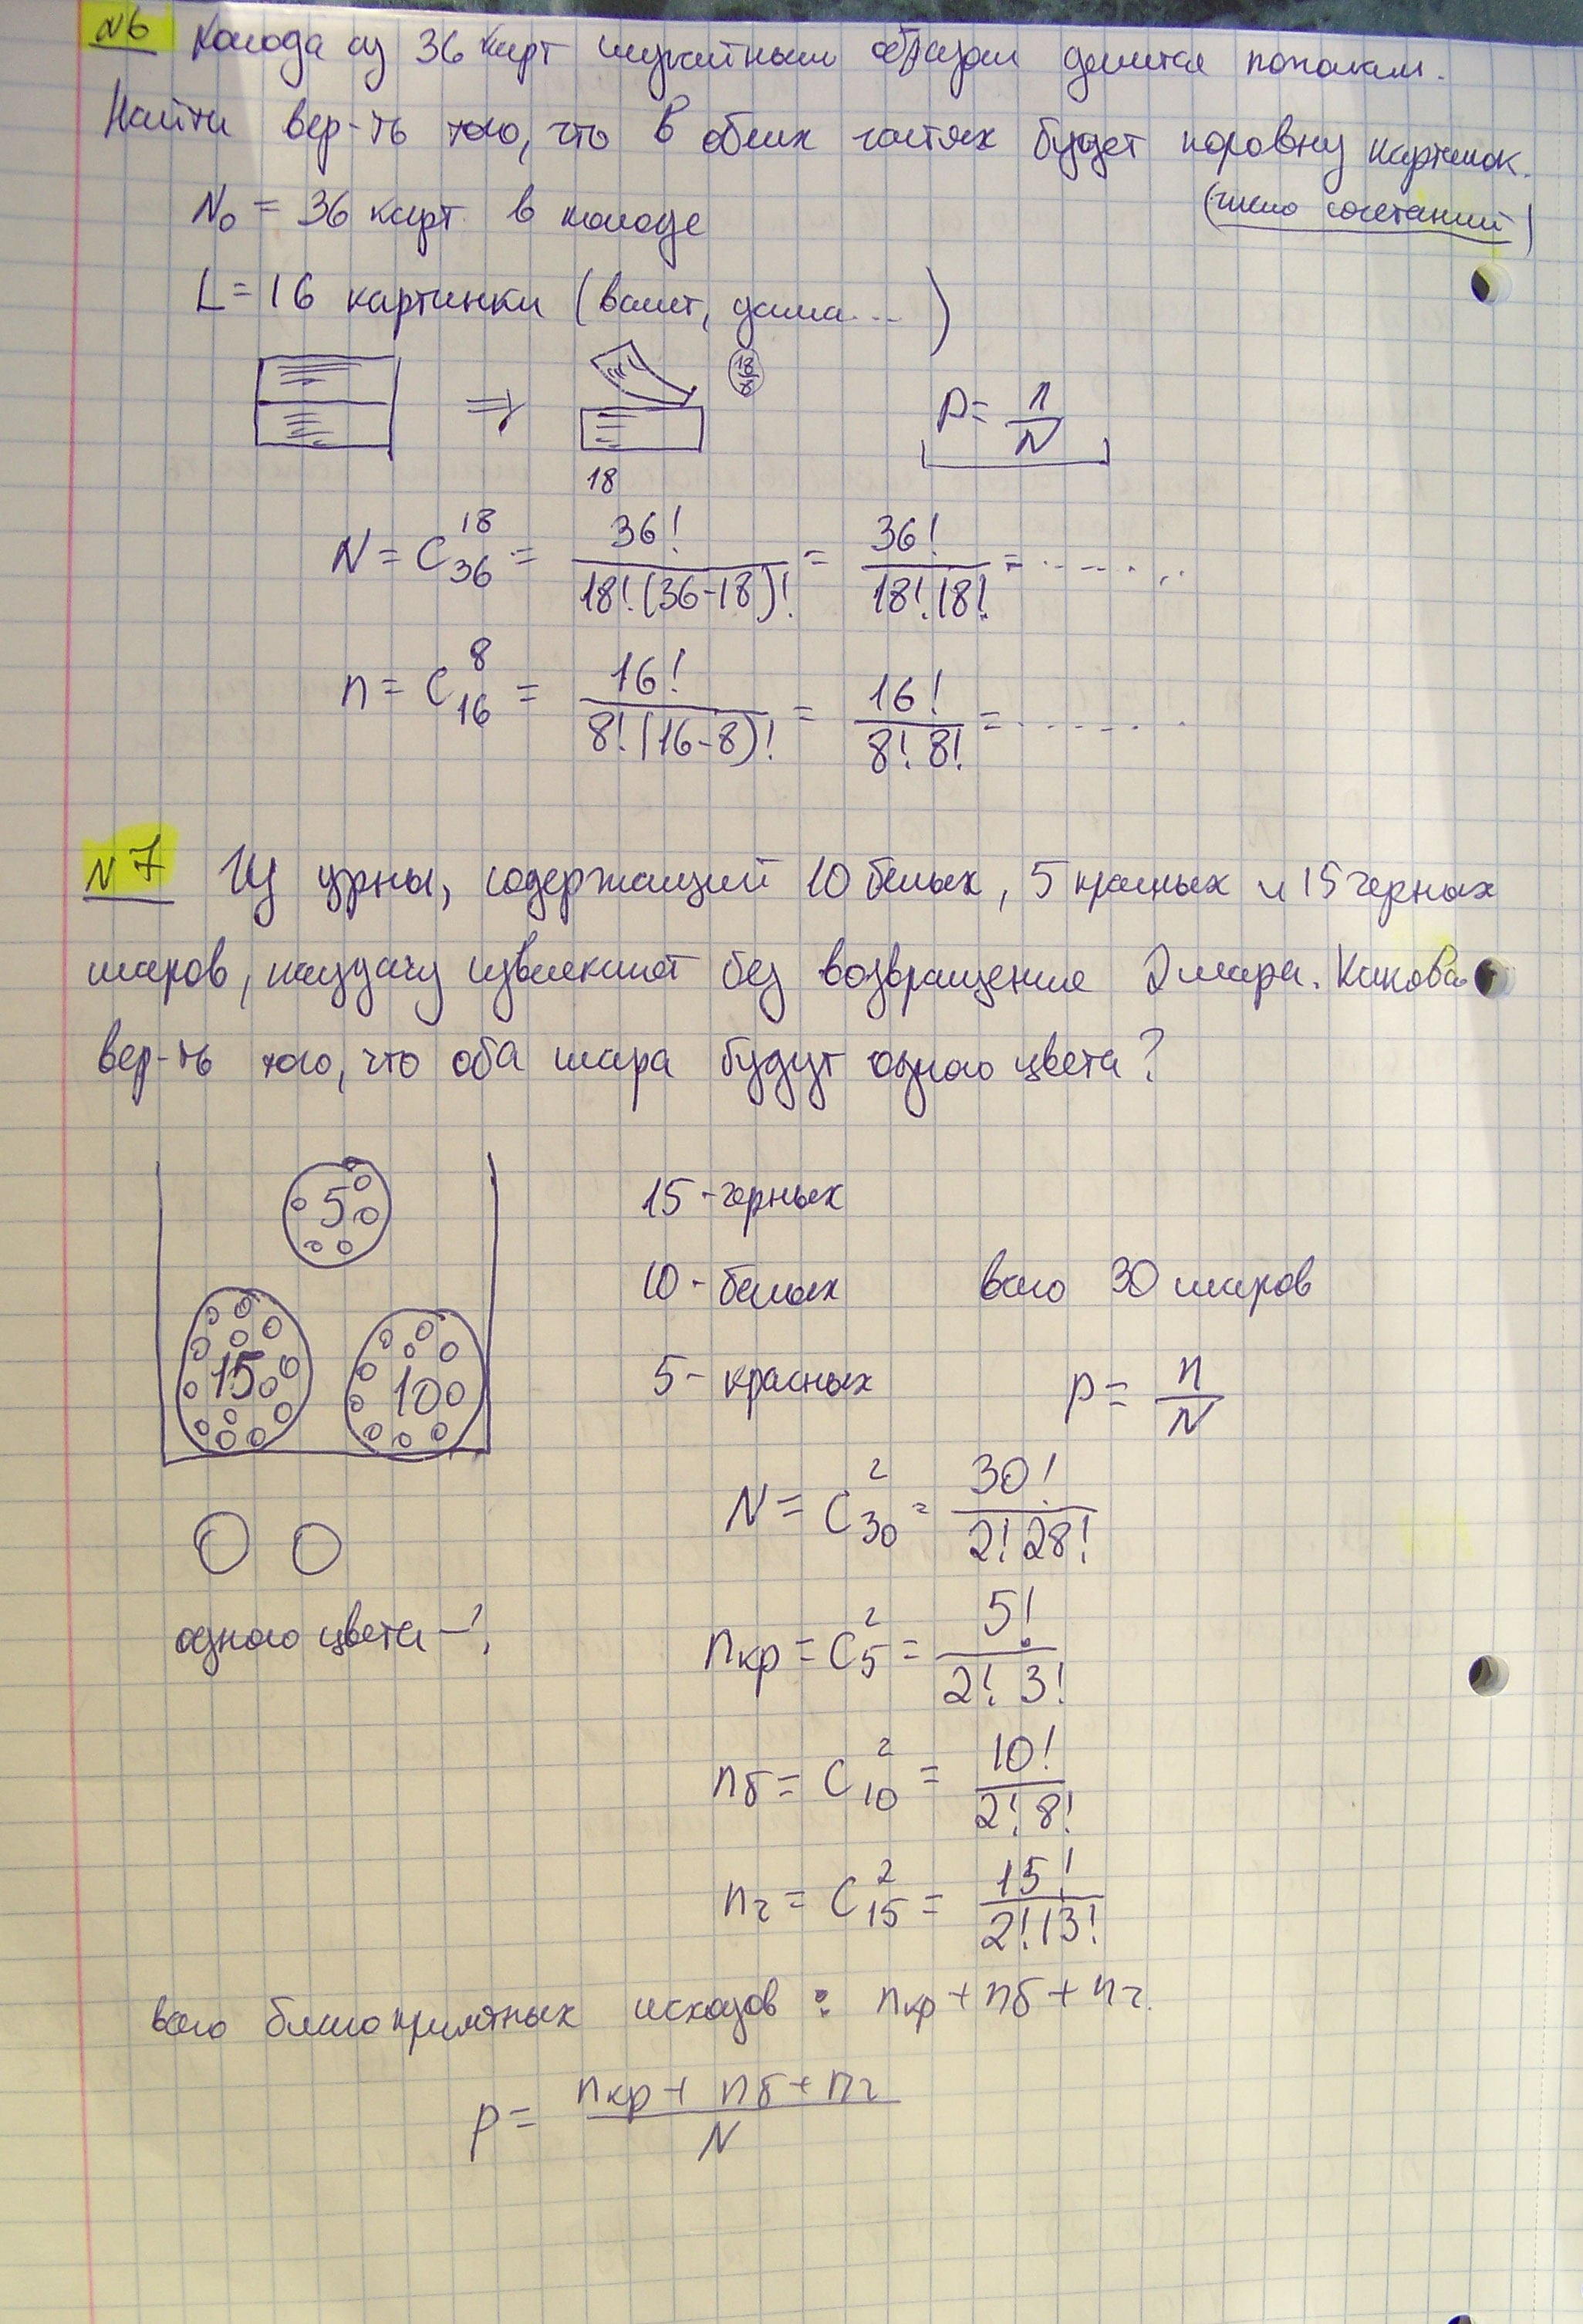 №6 Колода из 36 карт случайным образом делится пополам.
Найти вер-ть того, что в обеих частях будет поровну картинок.
(число сочетаний)
N₀ = 36 карт в колоде
L = 16 картинки (валет, дама...)
18
18
P = n/N
N = C₃₆¹⁸ = 36!/(18!(36-18)!) = 36!/(18!18!) = .......
n = C₁₆⁸ = 16!/(8!(16-8)!) = 16!/(8!8!) = .......
№7 Из урны, содержащий 10 белых, 5 красных и 15 черных
шаров, наудачу извлекают без возвращение 2 шара. Какова
вер-ть того, что оба шара будут одного цвета?
5
15 10
15 - черных
10 - белых всего 30 шаров
5 - красных
P = n/N
N = C₃₀² = 30!/(2!28!)
одного цвета - ?
nкр = C₅² = 5!/(2!3!)
nб = C₁₀² = 10!/(2!8!)
nч = C₁₅² = 15!/(2!13!)
всего благоприятных исходов : nкр + nб + nч.
P = (nкр + nб + nч)/N